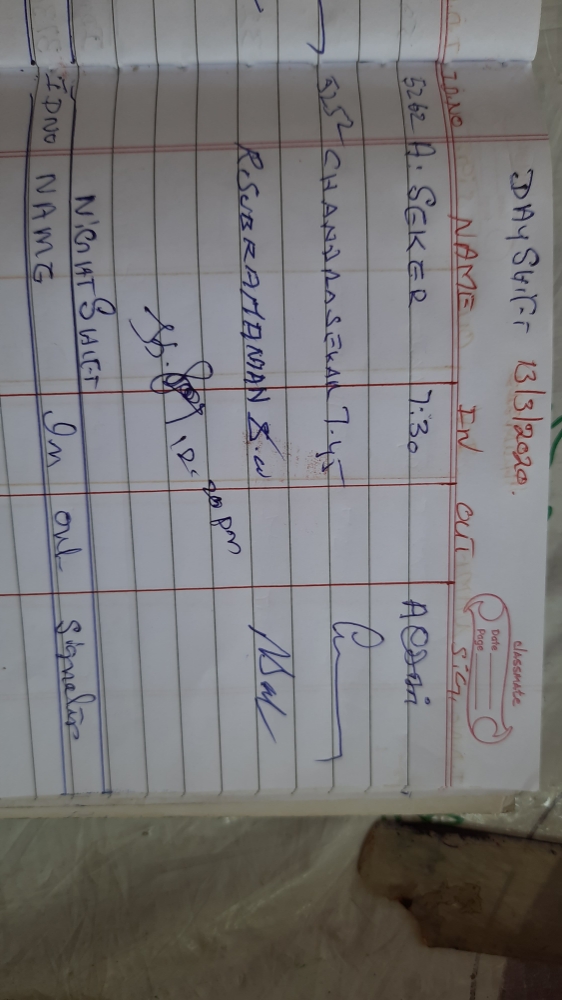 classmate
Date
Page
DAY SHIFT 13/3/2020.
IDNO NAME IN OUT SIG,
5262 A. SEKER 7:30
5252 CHANDRASEKAR 7.45
R.SUBRAMANIAN 8.00
12:00 pm
NIGHT SHIFT
IDNO NAME In out Signature